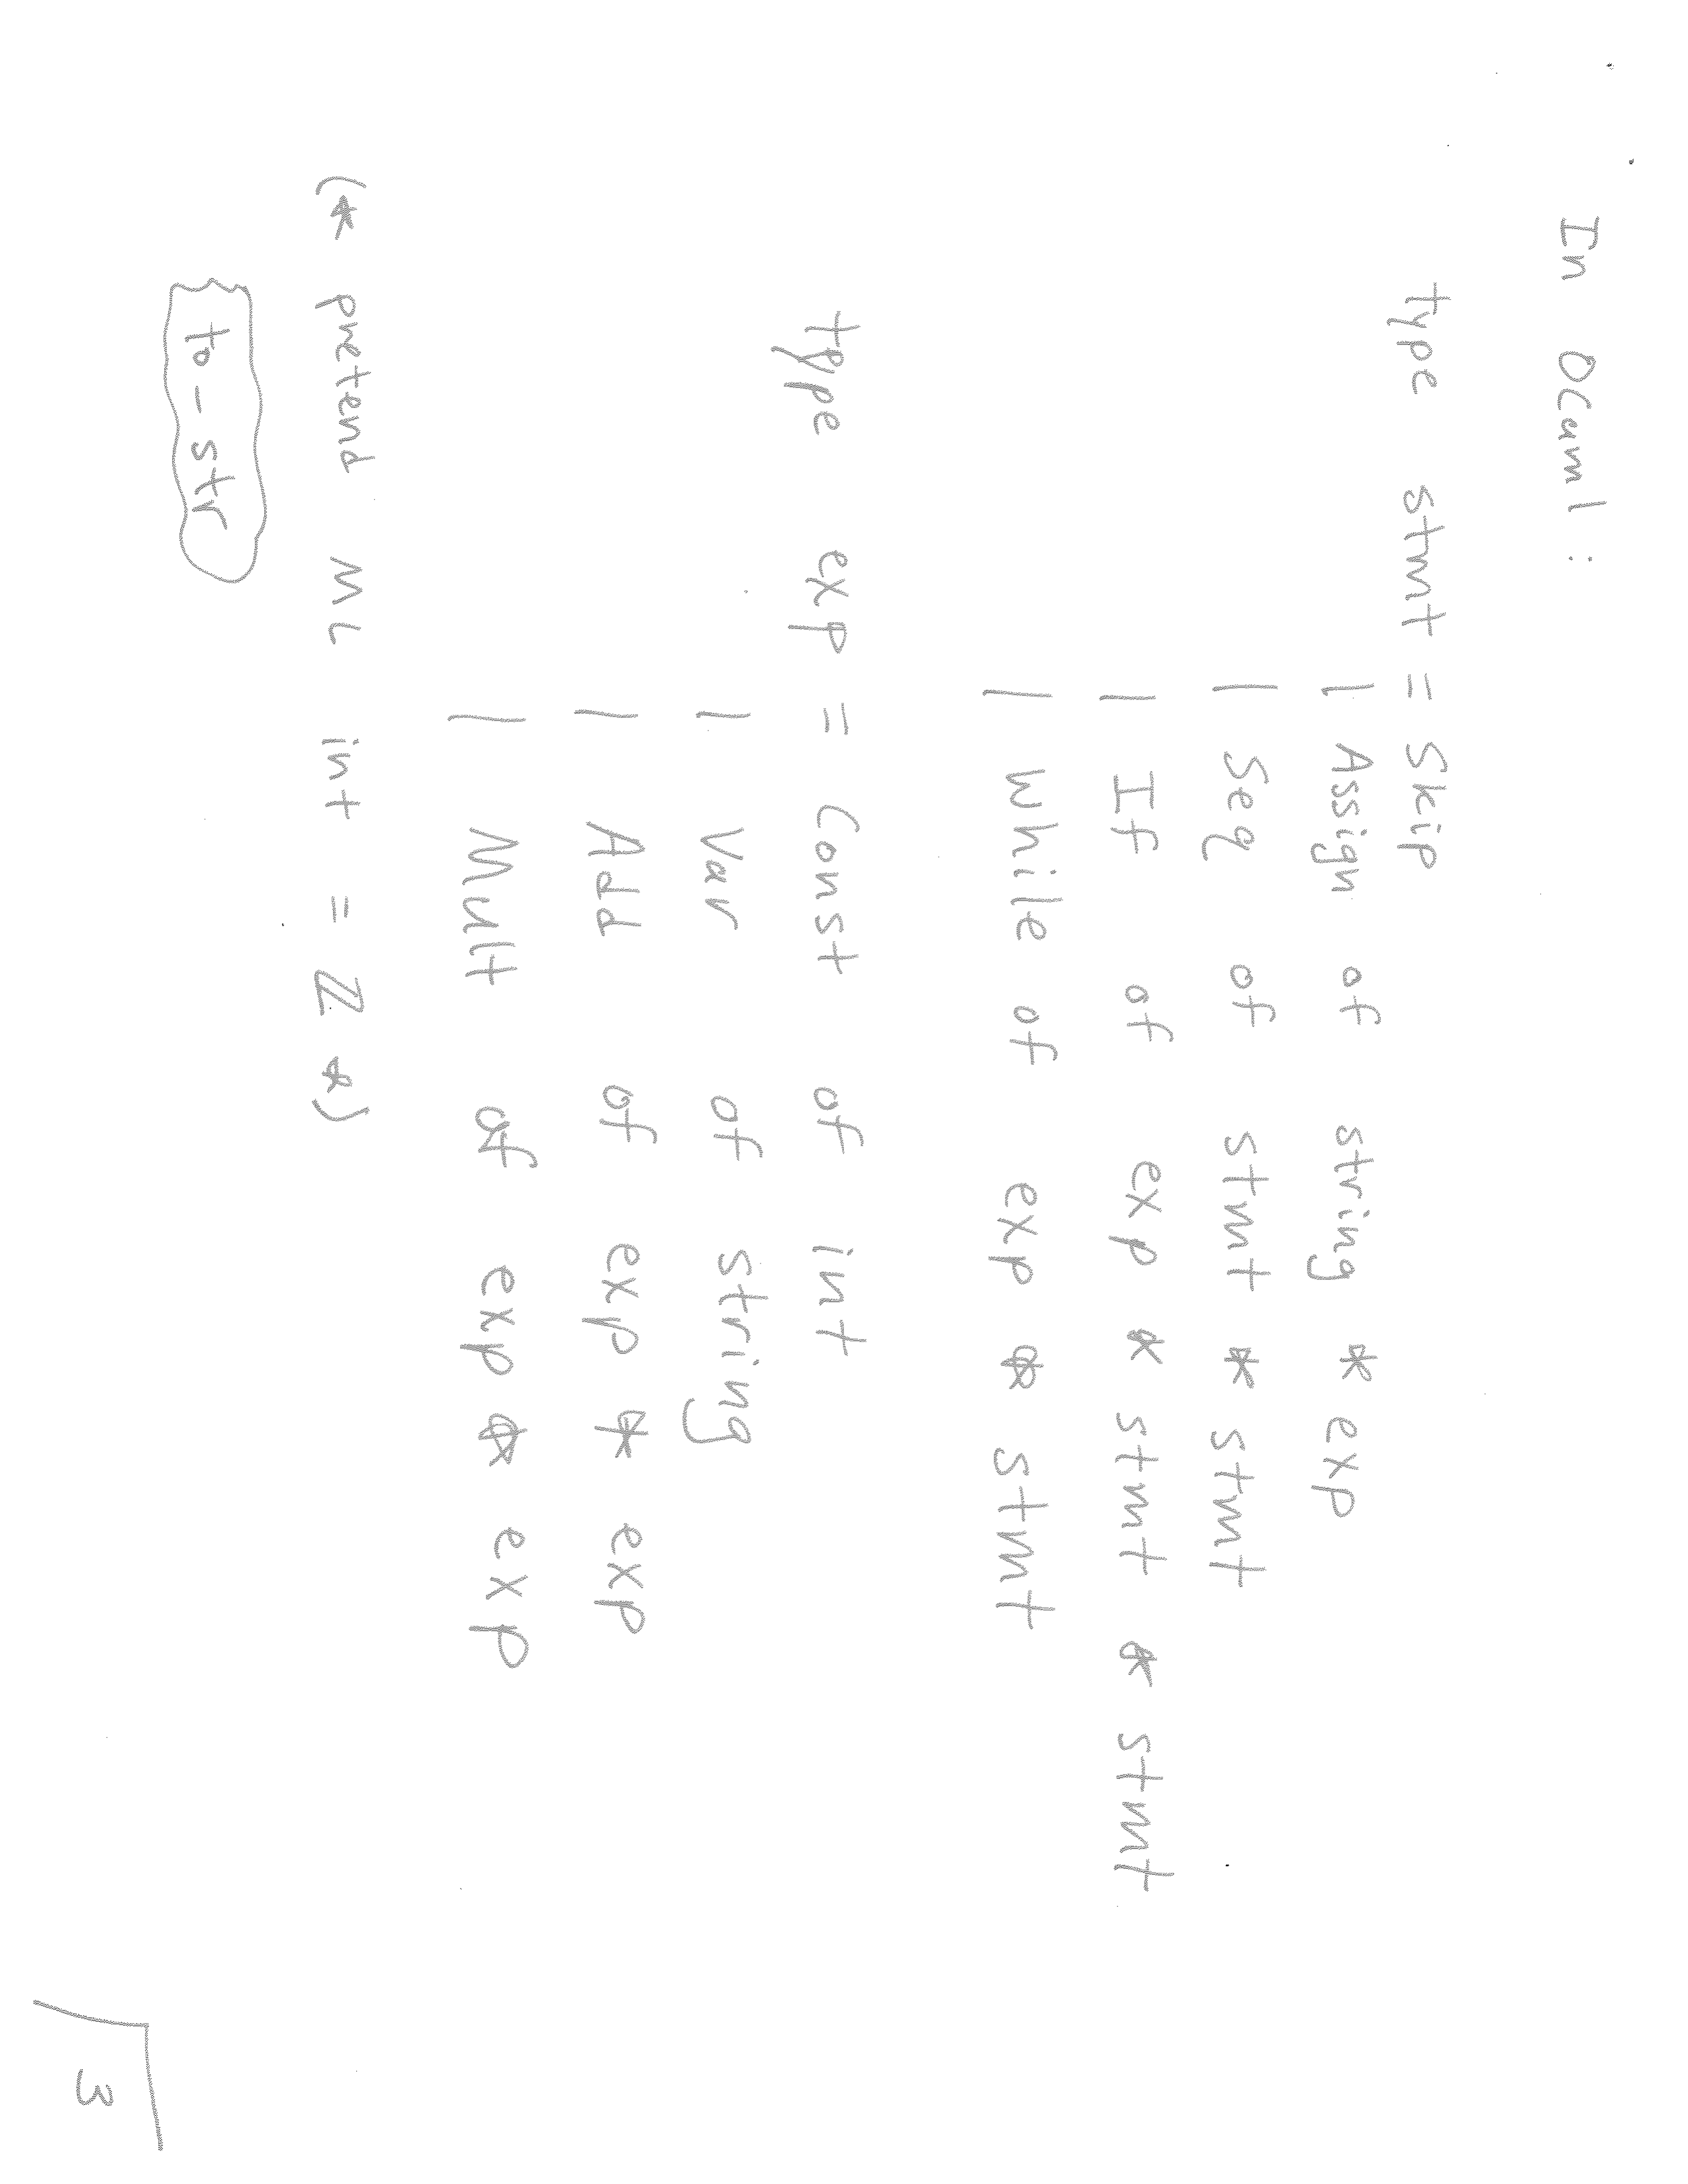 In OCaml:
type stmt = Skip
| Assign of string * exp
| Seq of stmt * stmt
| If of exp * stmt * stmt
| While of exp * stmt
type exp = Const of int
| Var of string
| Add of exp * exp
| Mult of exp * exp
(* pretend ML int = ℤ *)
to_str
3